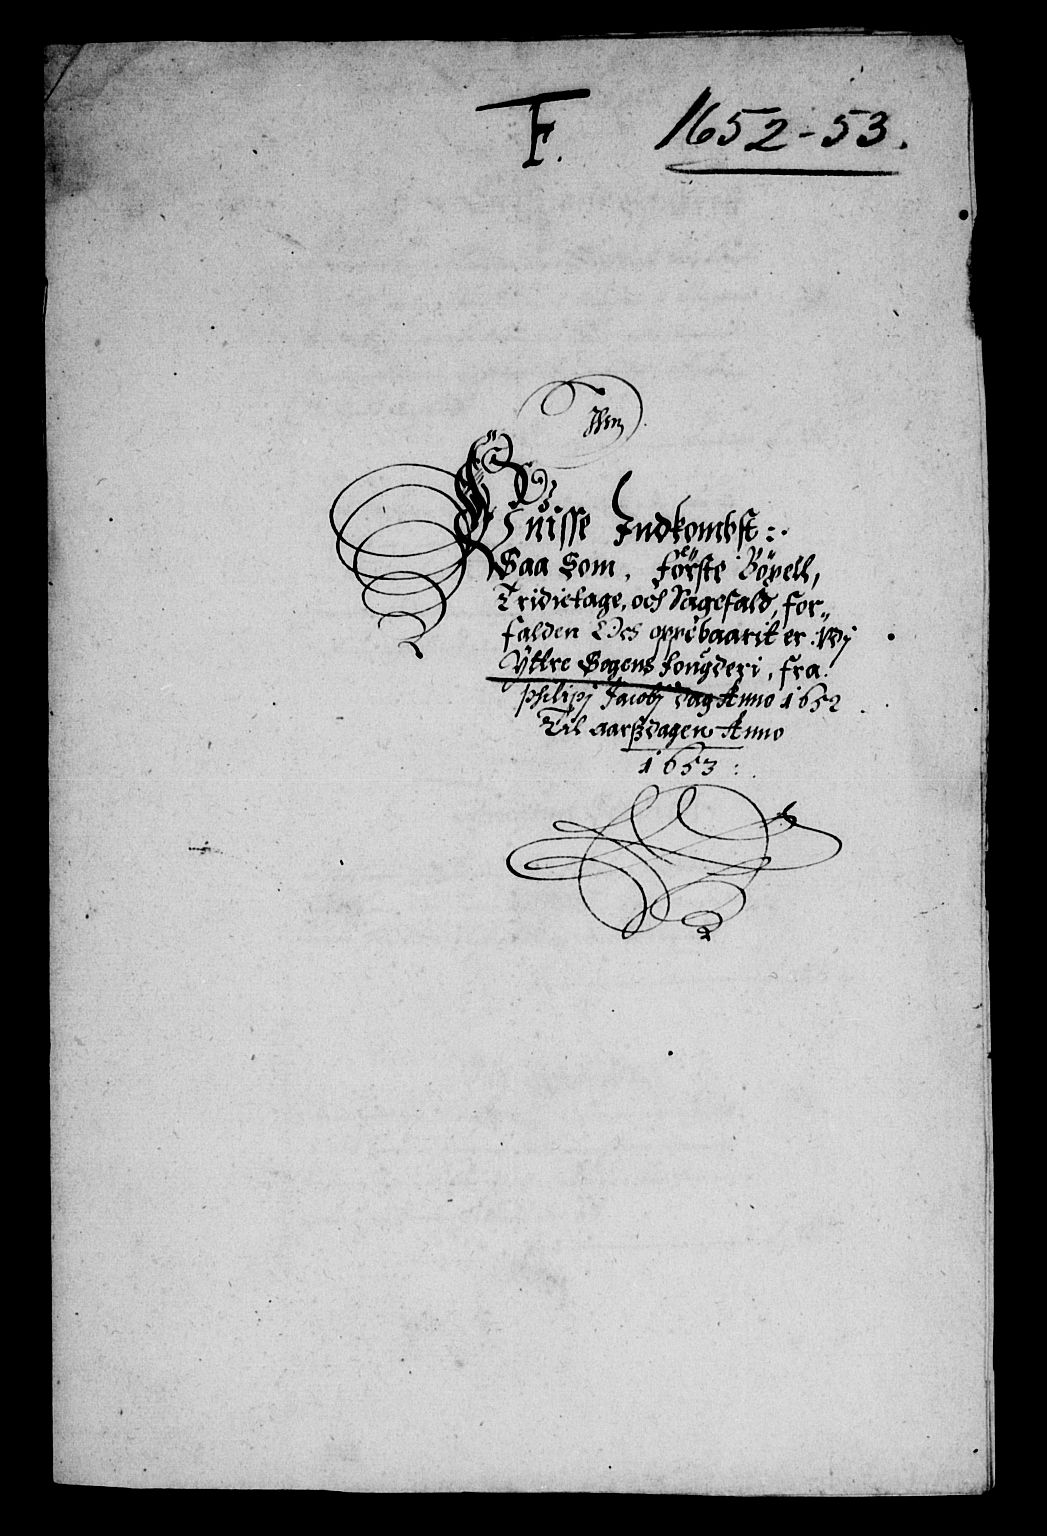 F. 1652-53.
Vuisse Indkombst:.
Saa Som, förste Böxell,
Tridietage, och Sagefald, for„
falden Och oppebaarit er. Wdj
Ÿttre Sogens fougderi, fra.
Philipj Jacobj dag Anno 1652
Til aarßdagen Anno
1653: